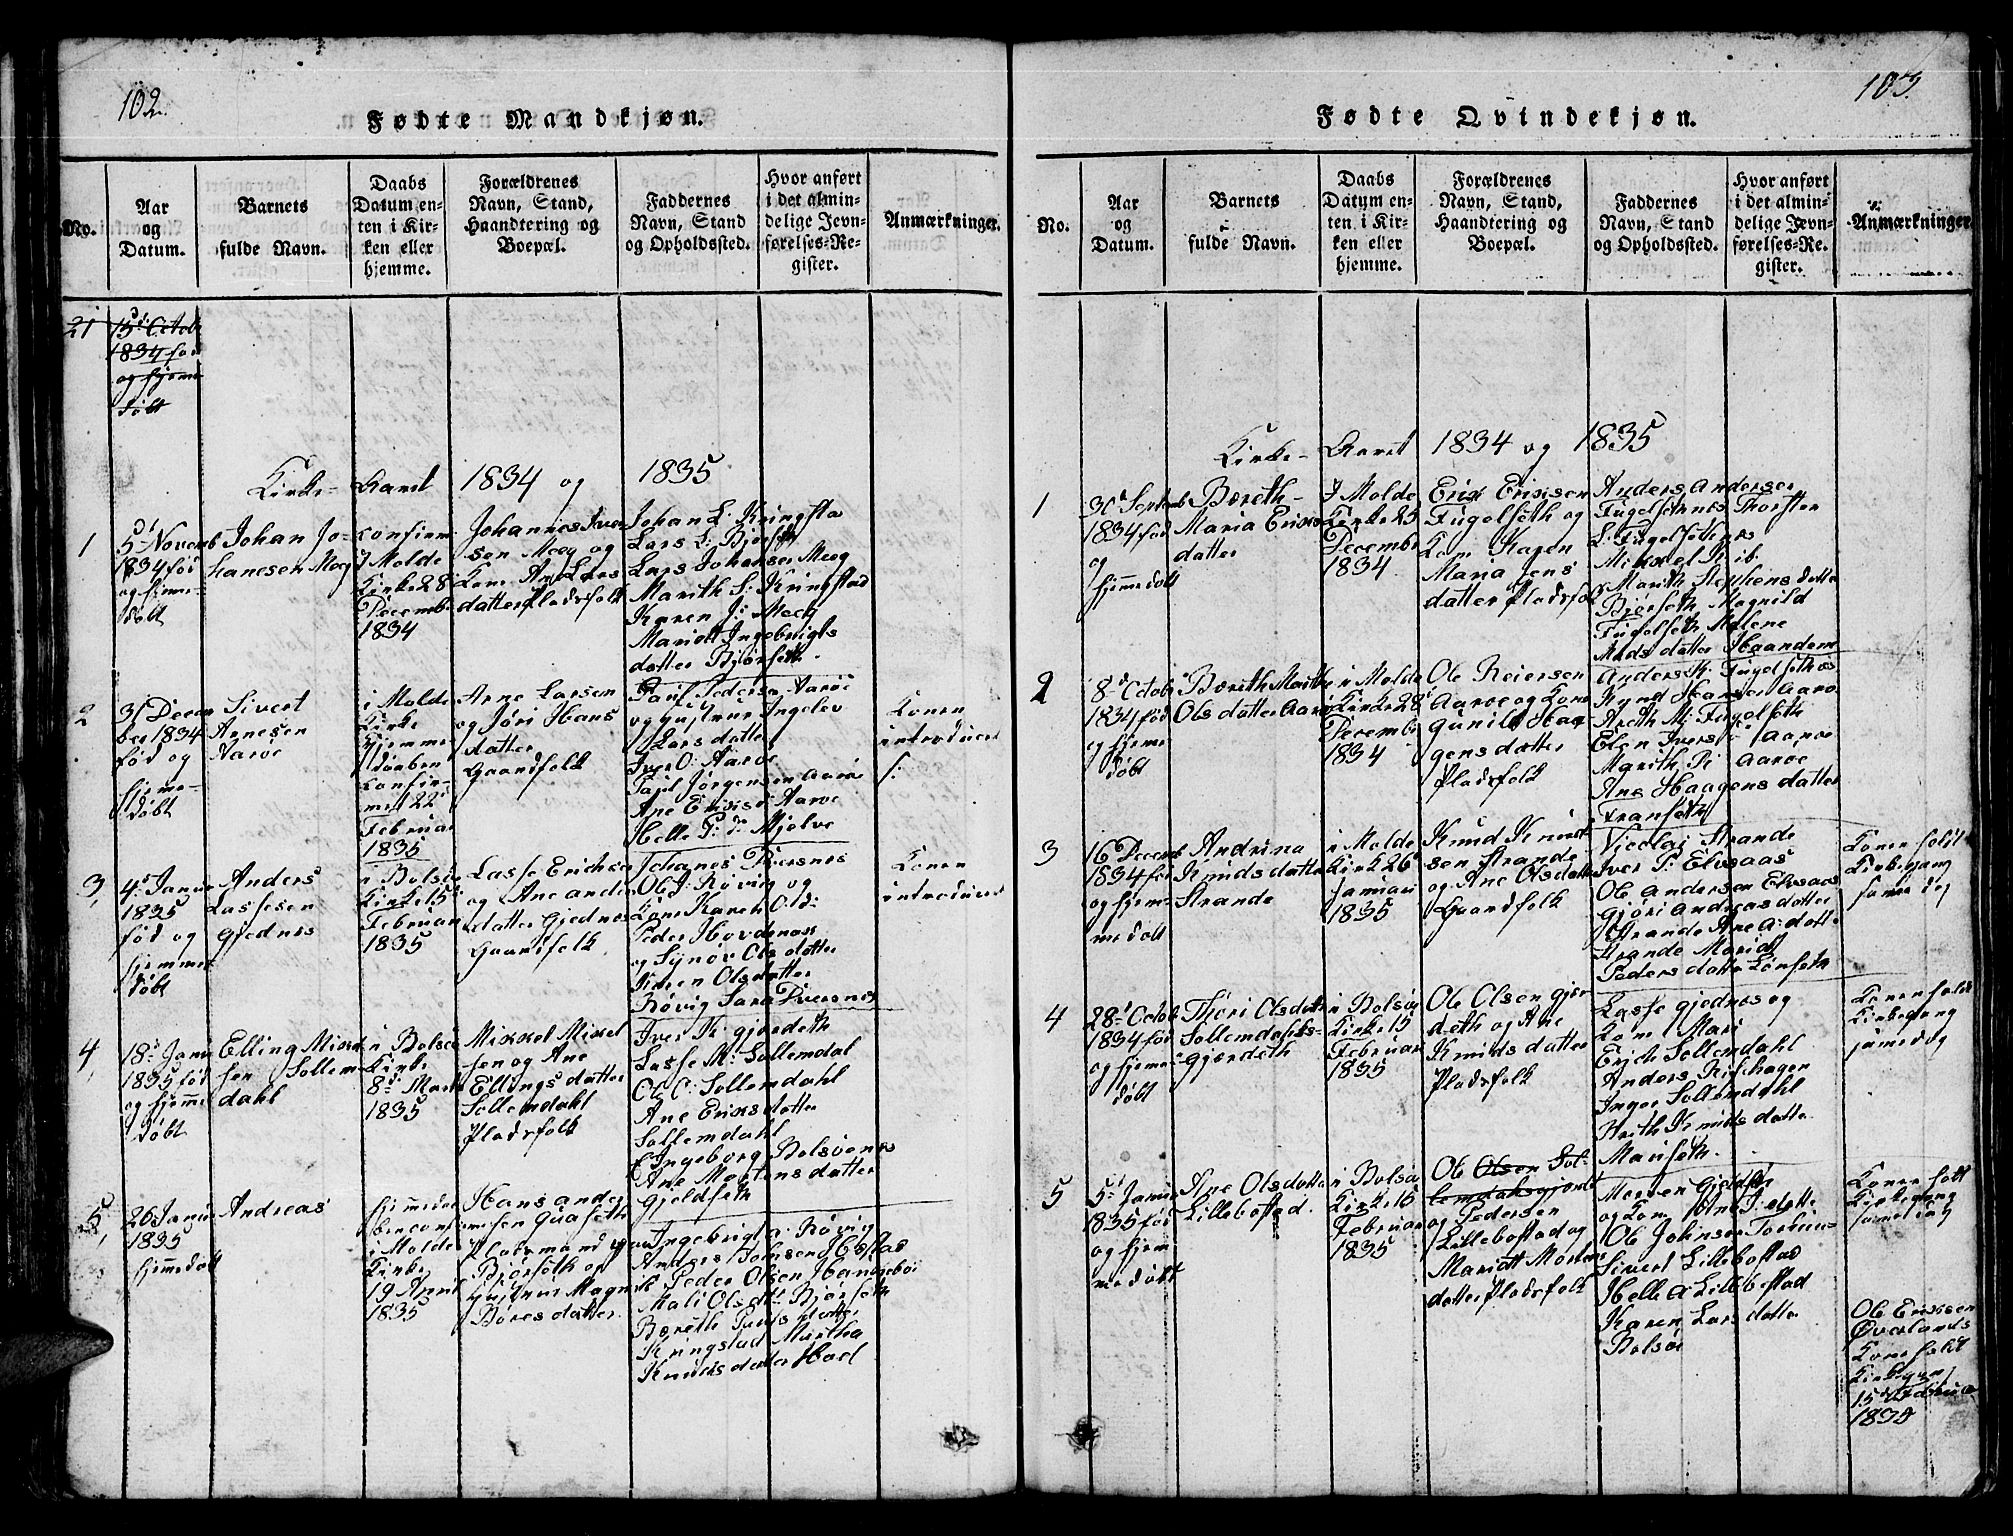 102.
Fødte Mandkjøn.
No.
Aar
og
Datum.
Barnets
fulde Navn.
Daabs
Datum en-
ten i Kir-
ken eller
hjemme.
Forældrenes
Navn, Stand,
Haandtering og
Boepæl.
Faddernes
Navn, Stand
og Opholdssted.
Hvor anført
i det almin-
delige Jevn-
førelses-Re-
gister.
Anmærkninger.
21
15d Octob
1834 fød
og hjeme
døbt
Kirke- Aaret 1834 og 1835
1
5d Novemb
1834 fød
og hjeme-
døbt
Johan Jo-
hanesen Moeg
confirm
i Molde
Kirke 28
Decemb
1834
Johannes Iver
sen Moeg og
Kone Ane Lars
datter Pladsfolk
Johan L: Kringsta
Lars L: Bjørseth
Lars Johansen Moeg
Marith S: Kringstad
Karen J:
Mariatt Ingebrigts
datter Bjørseth.
2
31 Decem
ber 1834
fød og
hjeme-
døbt
Sivert
Arnesen
Aarøe
i Molde
Kirke
hjemme
døbn
confir-
met 22
Februar
1835
Arne Larsen
og Jøri Hans
datter
Gaardfolk
Poul Pedersen Aarøe
og hustrue Ingebor
Lars datter
Iver O: Aarøe
Poul Jørgensen Aarøe
Ane Eriks d Aarøe
Helle P: d: Mjelve
Konen
introduceret
3,
4d Janu
1835
fød og
hjemme
døbt
Anders
Lassesen
Gjednes
i Bolsøe
Kirke 15d
Februar
1835
Lasse Erichsen
og Ane Anders
datter Gjednes
Gaardfolk
Johanes Tversnes
Ole J: Røvig og
Kone Karen O: d:
Peder Hovdenak
og Synøv Ols datter
Olsdatter
Røvig Sara Tversnes
Konen
introduceret
4,
18d Janu
1835 fød
og hjeme
døbt
Elling Mikkel
sen Sollem
dahl
i Bolsøe
Kirke
8d Marts
1835
Mikkel Mikel
sen og Ane
Ellings datter
Sollemdahl
Pladsfolk
Iver K: Gjerdeth
Lasse M: Sollemdal
Ole O: Sollemdahl
Ane Eriksdatter
Sollemdahl
Ingeborg Bolsøenes
Ane Mortens datter
Gjeldseth
5,
26 Janu
1835
hjemedøbt
Andreas
hjemmedø
i Molde
Kirke
19 April
1835
Hans Ander
sen Quaseth
Pladsmand
Bjørseth og
hustrue Magnil
Børes datter
Ingebrigt A: Røvig
Anders Johnsen Hostad
Peder Olsen Haugebøe
Mali Ols dt Bjørseth
Bereth datter
Kringstad Martha
Knuds datter Hoel
103.
Fødte Qvindekjøn.
No.
Aar
og
Datum.
Barnets
fulde Navn.
Daabs
Datum en-
ten i Kir-
ken eller
hjemme.
Forældrenes
Navn, Stand,
Haandtering og
Boepæl.
Faddernes
Navn, Stand
og Opholdssted.
Hvor anført
i det almin-
delige Jevn-
førelses-Re-
gister.
Anmærkninger.
Kirke- Aaret 1834 og 1835
1
30 Septemb
1834 fød
og
hjemedøbt
Bereth-
Maria Eriks
datter
I Molde
Kirke 25
Decembr
1834
Erik Eriksen
Fugelseth og
Kone Karen
Maria Jens
datter Pladsfolk
Anders Andersen
Fugelsetnes Thorsten
L: Fugelsethnes
Mikkel
Marith Stephens datter
Bjørseth Magnild
Fugelseth Malene
Mads datter Haandem
2
8d Octob
1834 fød
og hjeme
døbt
Bereth Marith
Ols datter Aarøe
i Molde
Kirke 28
Decemb
1834
Ole Reiersen
Aarøe og Kone
Gunild Haa
gensdatter
Pladsfolk
Anders K: Fugelsethnes
Knud Hansen Aarøe
Areth M: Fugelseth
Elen Ivers d Aarøe
Marith P: Aarøe
Ane Haagens datter
Franseth
3
16 Decemb
1834 fød
og hjem-
me døbt
Andrina
Knuds datter
Strande
i Molde
Kirke 26
Januari
1835
Knud Knud
sen Strande
og Ane Olsdatter
Gaardfolk
Nicolai Strande
Iver P: Elvsaas
Ole Andersen Elvsaas
Gjøri Andreas datter
Strande Ane A: datter
Strande Maria
Peders datter Lønseth
Konen holdt
Kirkegang
samme dag
4
28d Octob
1834 fød
og hjeme-
døbt
Thøri Olsdatter
Sollemdahls-
gjerdeth
i Bolsøe
Kirke 15
Februar
1835
Ole Olsen Gjer
deth og Ane
Knuds datter
Pladsfolk
Lasse Gjednes og
Kone Mari
Erich Sollemdahl
Anders Rishagen
Inger Sollemdahl
Knuds datter
Mariseth.
Konen holdt
Kirkegang
same dag
5
5d Janua
1835 fød
og hjem
medøbt
Ane Olsdatter
Lillebostad.
i Bolsøe
Kirke 15
Februar
1835
Ole Olsen Sol-
lemdalsgjerdet
og Pedersen
Lillebostad og
Mariatt Morten
datter Pladsfolk
Morten Gjeldseth
og Kone Ane I: datter
Ole Johnsen
Sivert Lillebostad
Helle A Lillebostad
Karen Lars datter
Bolsøe
Konen holt
Kirkegang
same dag
Ole Eriksen
Øverlands
Kone holdt
Kirkegang
15d Februar
1835